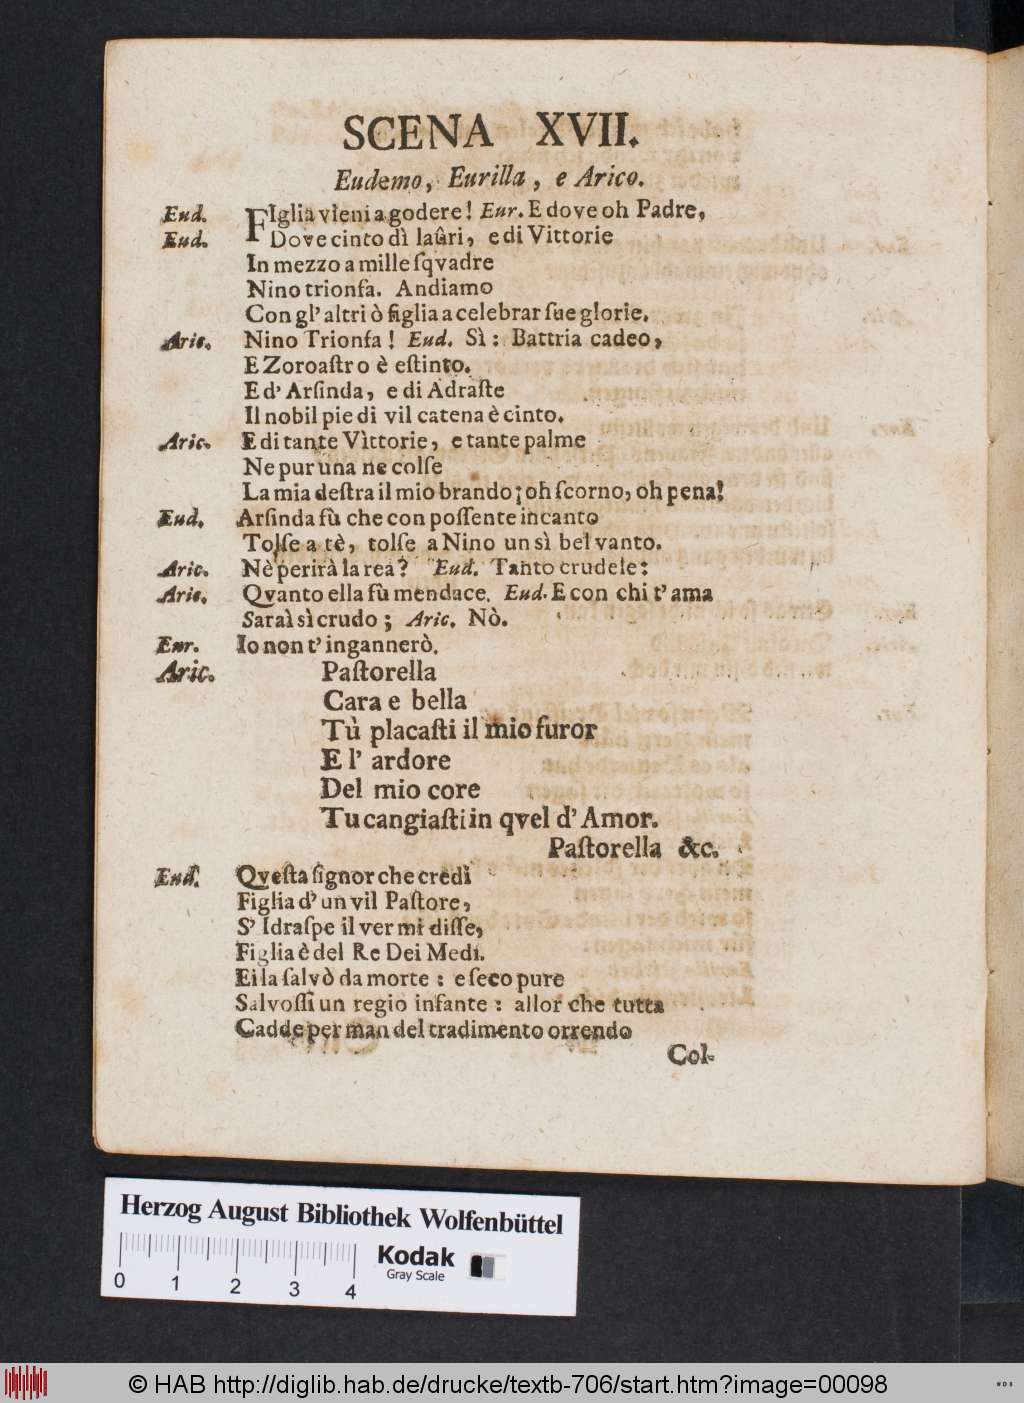 SCENA XVII.
Eudemo, Eurilla, e Arico.
Eud. FIglia vieni a godere! Eur. E dove oh Padre,
Eud. Dove cinto dì laûri, e di Vittorie
In mezzo a mille ſqvadre
Nino trionfa. Andiamo
Con gl' altri ò figlia a celebrar ſue glorie.
Aric. Nino Trionfa! Eud. Sì: Battria cadeo,
E Zoroaſtro è eſtinto.
E d' Arſinda, e di Adraſte
Il nobil pie di vil catena è cinto.
Aric. E di tante Vìttorie, e tante palme
Ne pur una ne colſe
La mia deſtra il mio brando; oh ſcorno, oh pena!
Eud. Arſinda fù che con poſſente incanto
Tolſe a tè, tolſe a Nino un sì bel vanto.
Aric. Nè perirà la rea? Eud. Tanto crudele:
Aric. Qvanto ella fù mendace. Eud. E con chi t' ama
Saraì sì crudo; Aric. Nò.
Eur. Io non t' ingannerò.
Aric. Paſtorella
Cara e bella
Tù placaſti il mio furor
E l' ardore
Del mio core
Tu cangiaſti in qvel d' Amor.
Paſtorella &c.
Eud. Qveſta ſignor che credi
Figlia d' un vil Paſtore,
S' Idraſpe il ver mi diſſe,
Figlia è del Re Dei Medi.
Ei la ſalvò da morte: e ſeco pure
Salvoſſi un regio infante: allor che tutta
Cadde per man del tradimento orrendo
Col-
Herzog August Bibliothek Wolfenbüttel
0 1 2 3 4
Kodak
Gray Scale
© HAB http://diglib.hab.de/drucke/textb-706/start.htm?image=00098